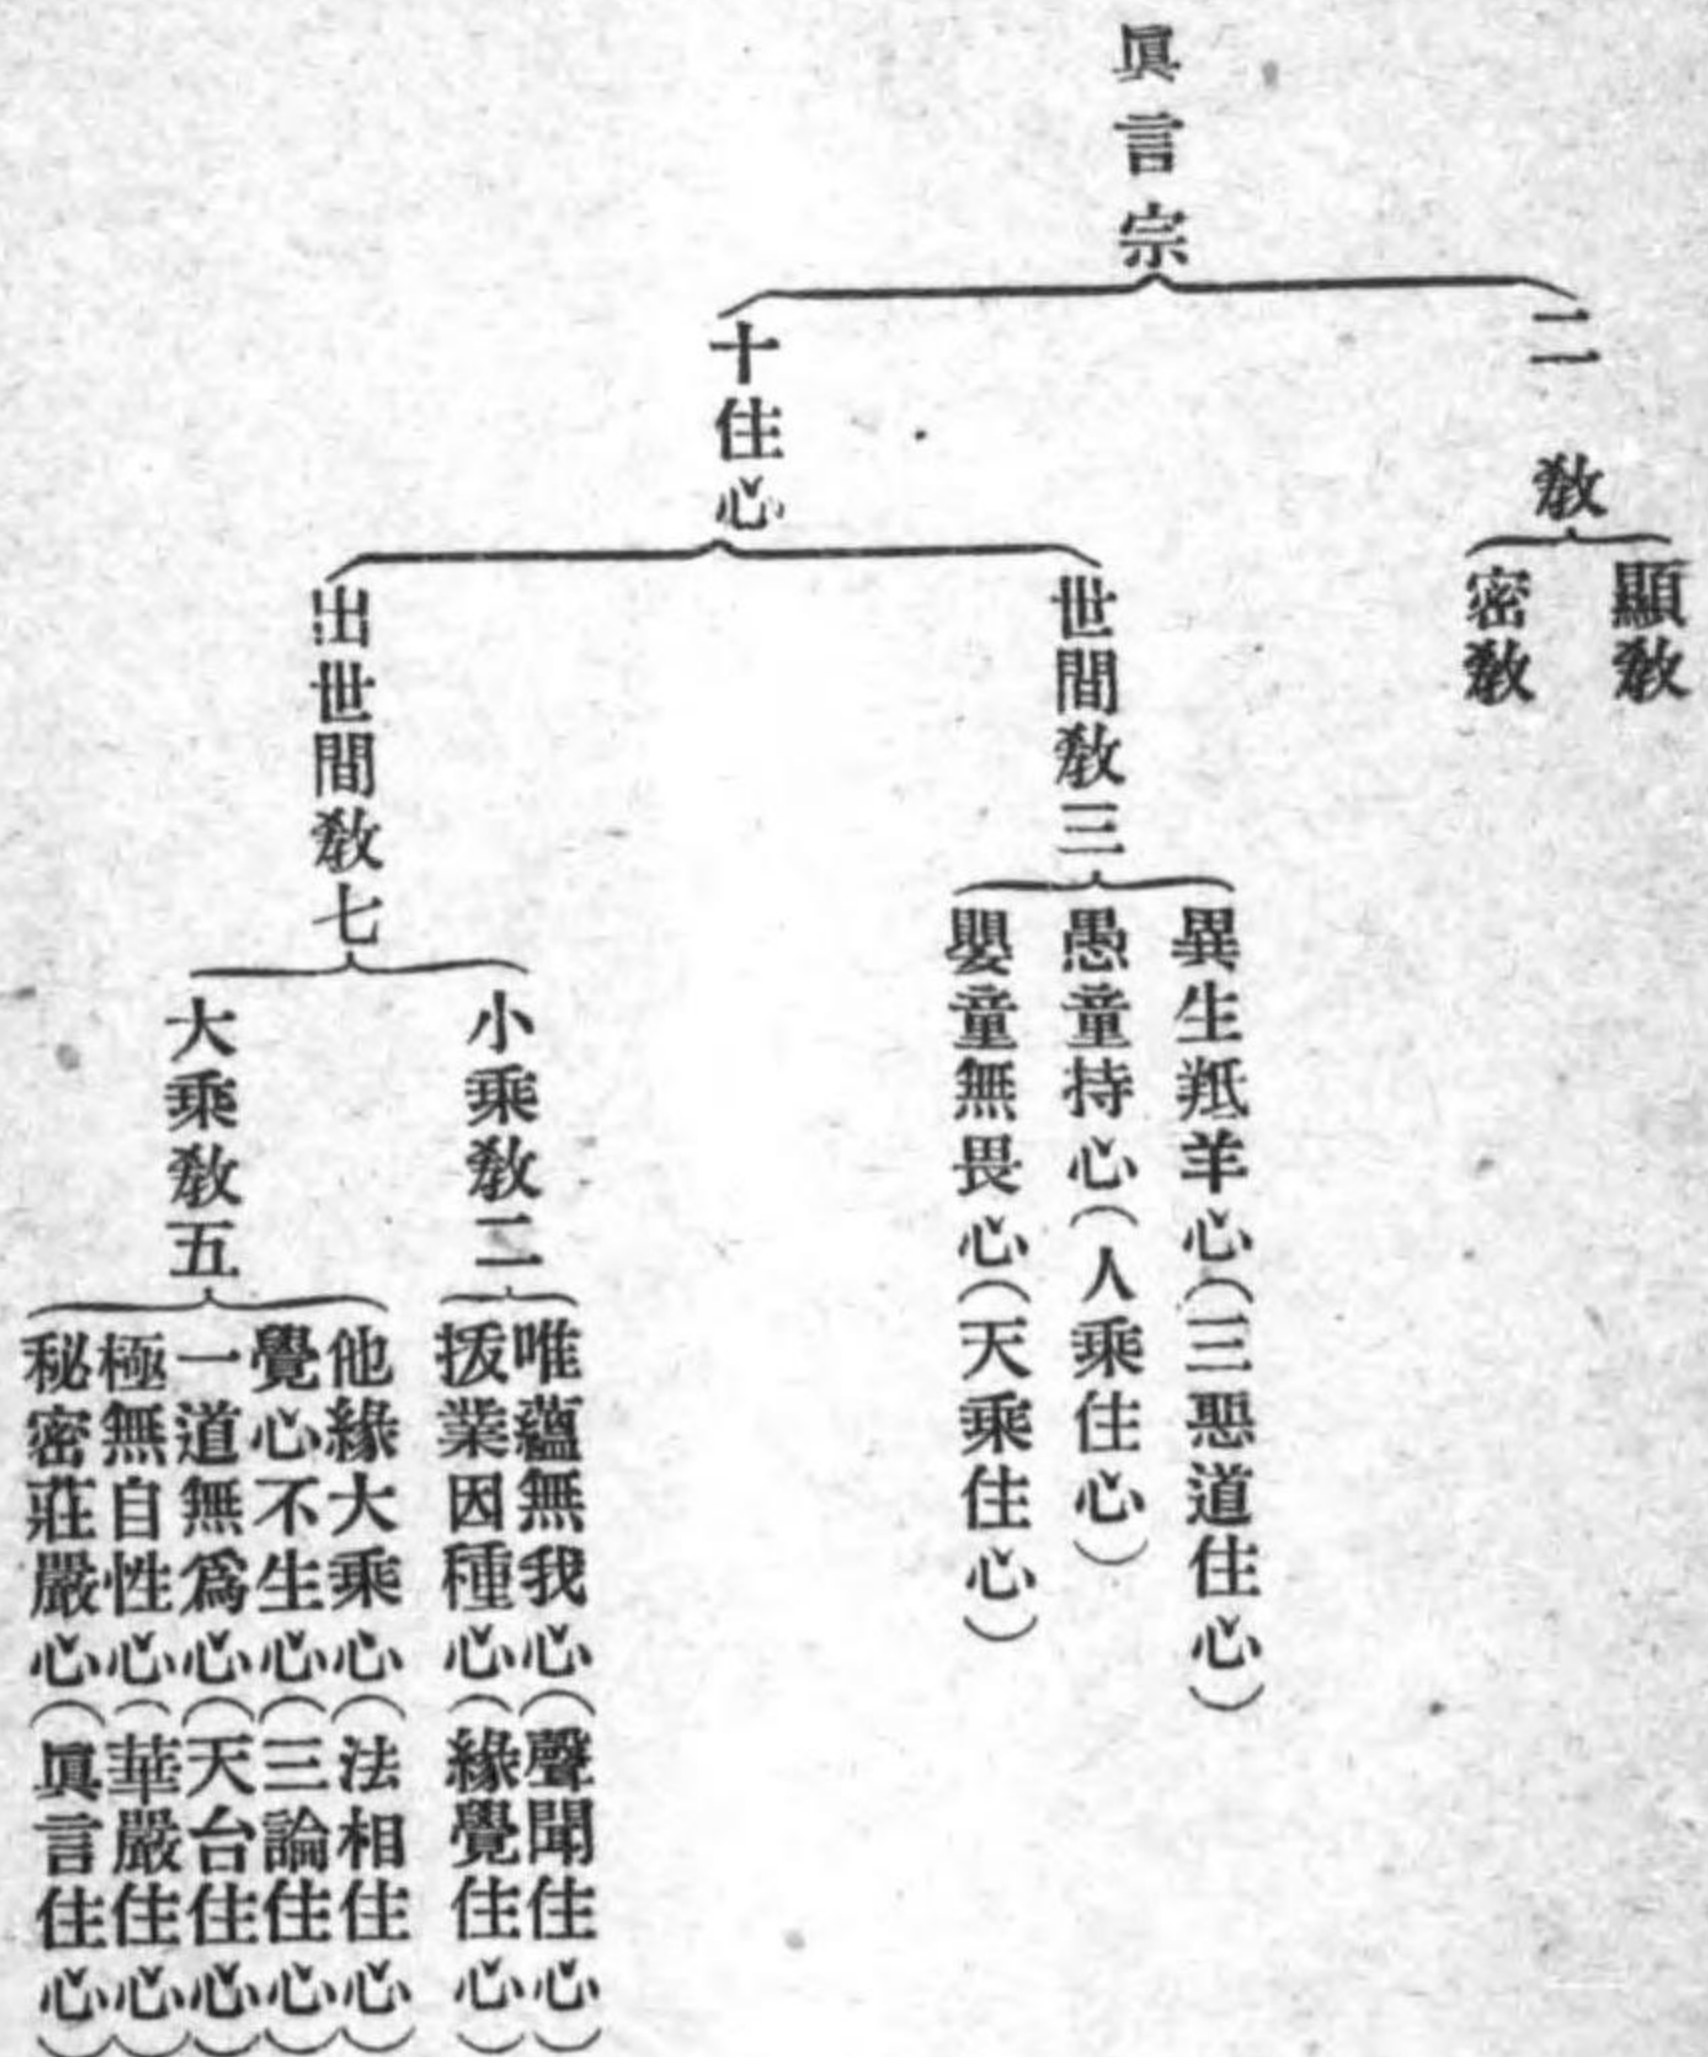 眞言宗
二敎
顯敎
密敎
十住心
世間敎三
異生羝羊心(三惡道住心)
愚童持心(人乘住心)
嬰童無畏心(天乘住心)
出世間敎七
小乘敎二
唯蘊無我心(聲聞住心)
拔業因種心(緣覺住心)
大乘敎五
他緣大乘心(法相住心)
覺心不生心(三論住心)
一道無爲心(天台住心)
極無自性心(華嚴住心)
秘密莊嚴心(眞言住心)